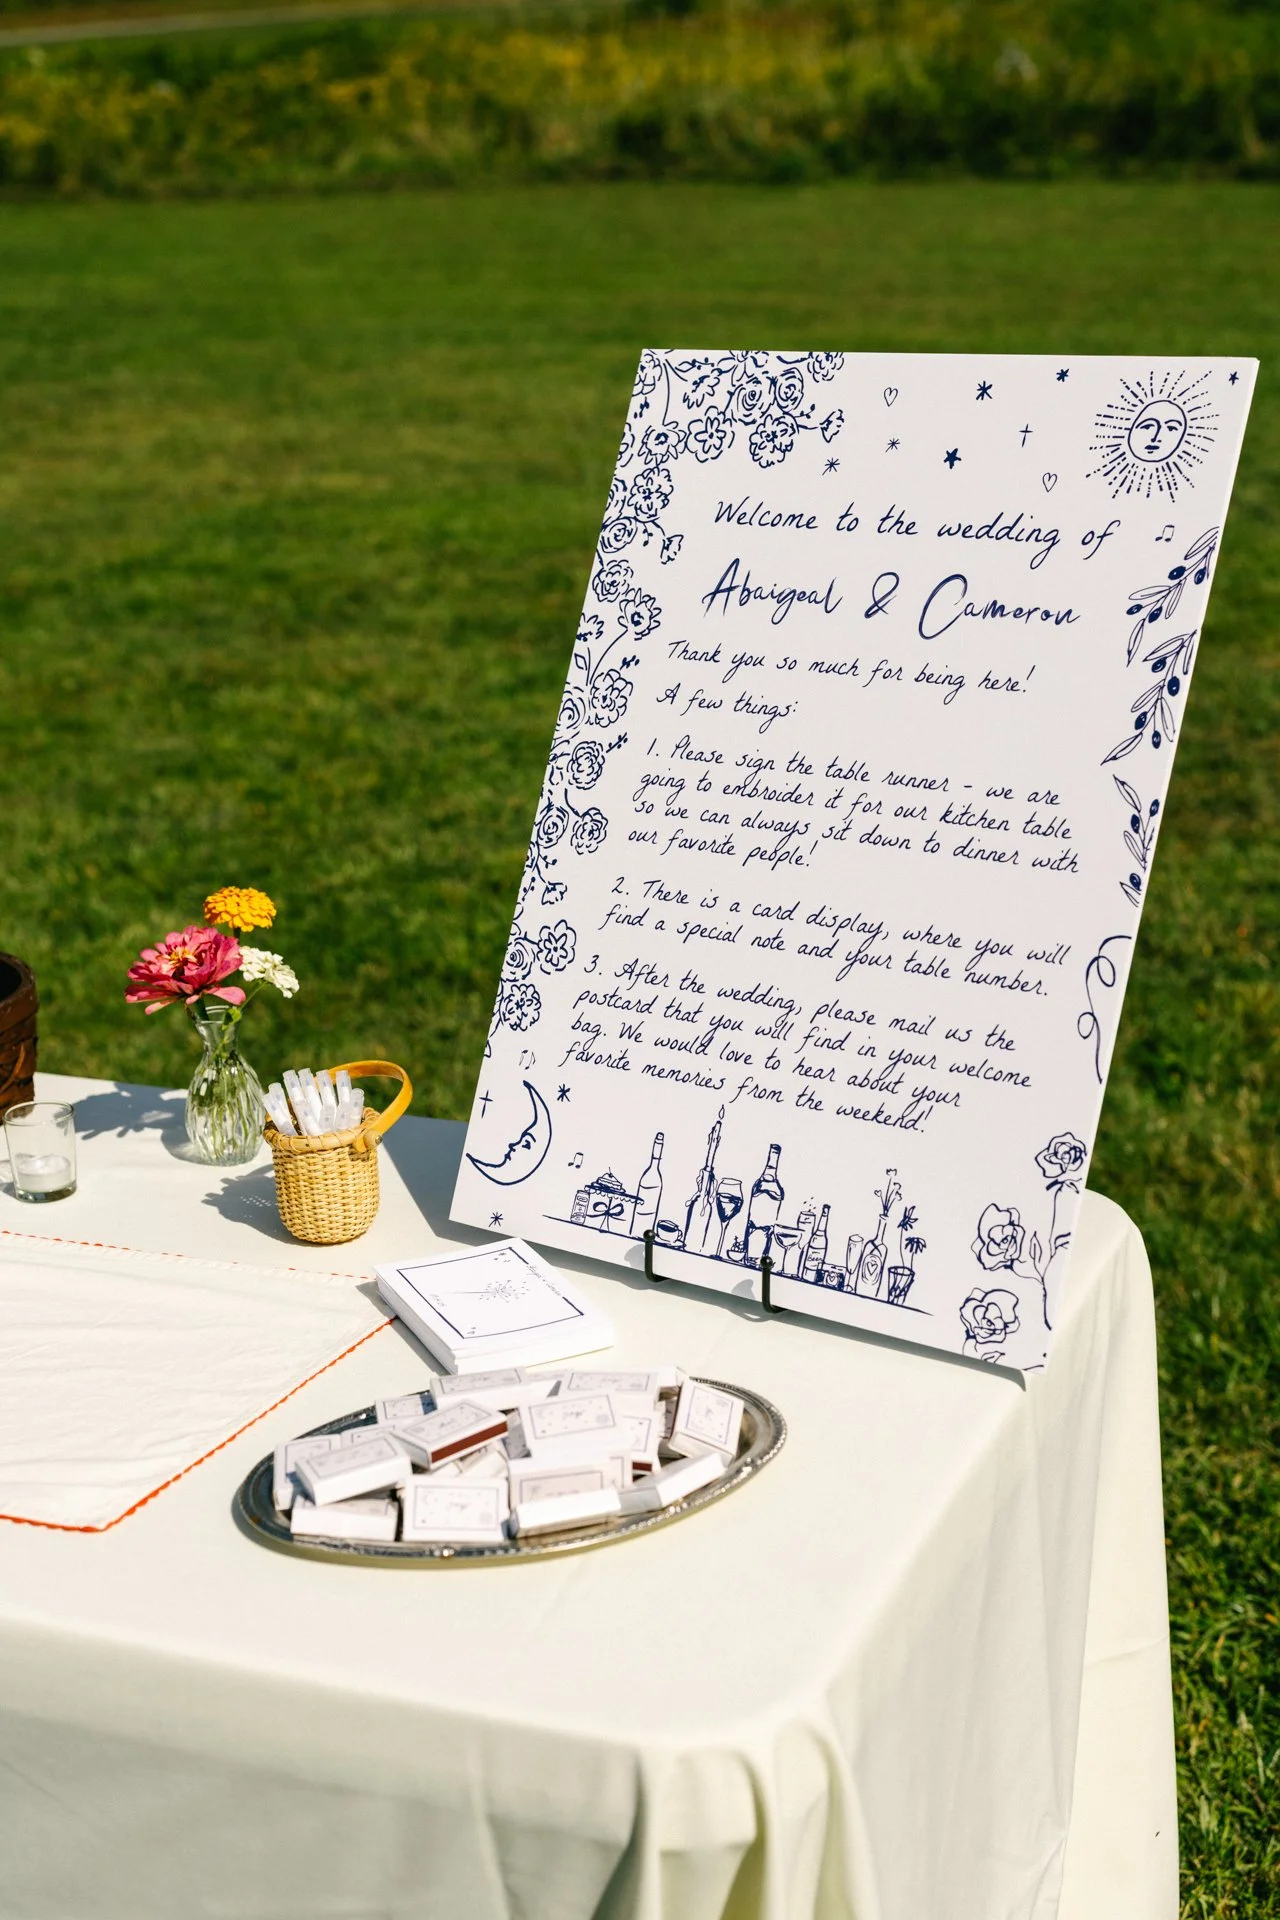 Welcome to the wedding of
Abaigeal & Cameron
Thank you so much for being here!
A few things:
1. Please sign the table runner - we are
going to embroider it for our kitchen table
so we can always sit down to dinner with
our favorite people!
2. There is a card display, where you will
find a special note and your table number.
3. After the wedding, please mail us the
postcard that you will find in your welcome
bag. We would love to hear about your
favorite memories from the weekend!